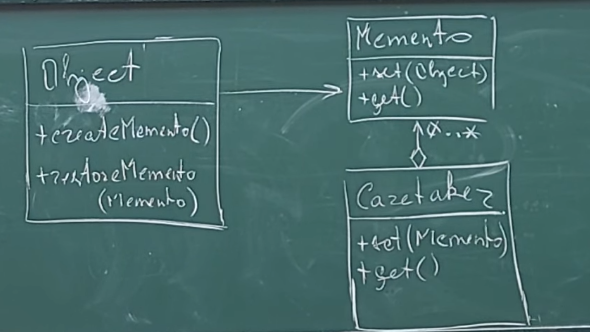 Object
+createMemento()
+restoreMemento
(Memento)
Memento
+set(Object)
+get()
0..*
Caretaker
+set(Memento)
+get()